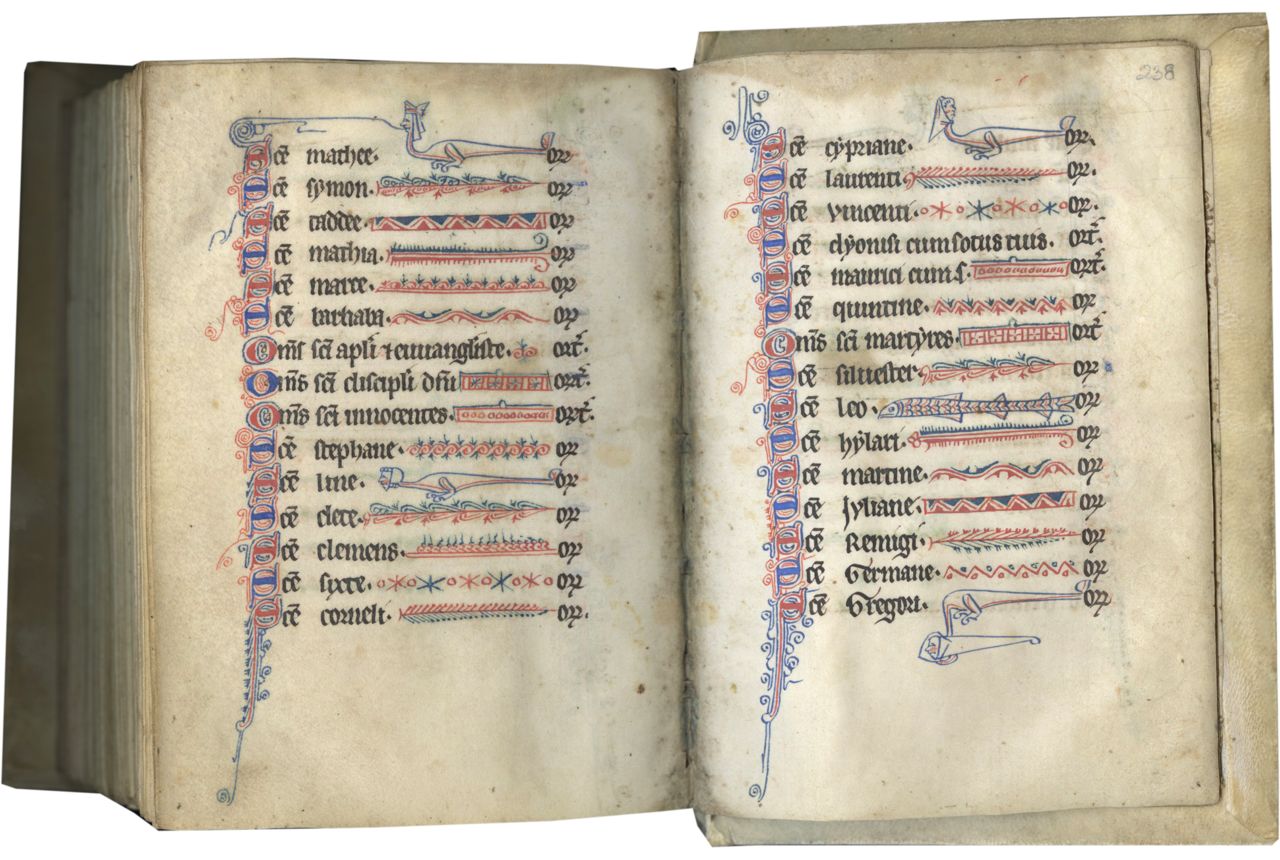 Scẽ mathee. orr
Scẽ symon. orr
Scẽ taddee. orr
Scẽ mathia. orr
Scẽ marce. orr
Scẽ barnaba. orr
Om̃s sc̃i apl̃i ⁊ euuangliste. ort̃.
Om̃s sc̃i discipli dñi ort̃.
Om̃s sc̃i innocentes. ort̃.
Scẽ stephane. orr
Scẽ line. orr
Scẽ clete. orr
Scẽ clemens. orr
Scẽ sixte. orr
Scẽ corneli. orr.
238
Scẽ cypriane. orr.
Scẽ laurenti. or.
Scẽ vincenti. or.
Scẽ dyonisi cum sotiis tuis. ort̃.
Scẽ maurici cum s. ort̃.
Scẽ quintine. orr
Om̃s sc̃i martyres. ort̃
Scẽ siluester. orr
Scẽ leo. orr
Scẽ hylari. orr
Scẽ martine. orr
Scẽ Iyliane. orr
Scẽ Remigi. orr
Scẽ Germane. orr
Scẽ Gregori. orr